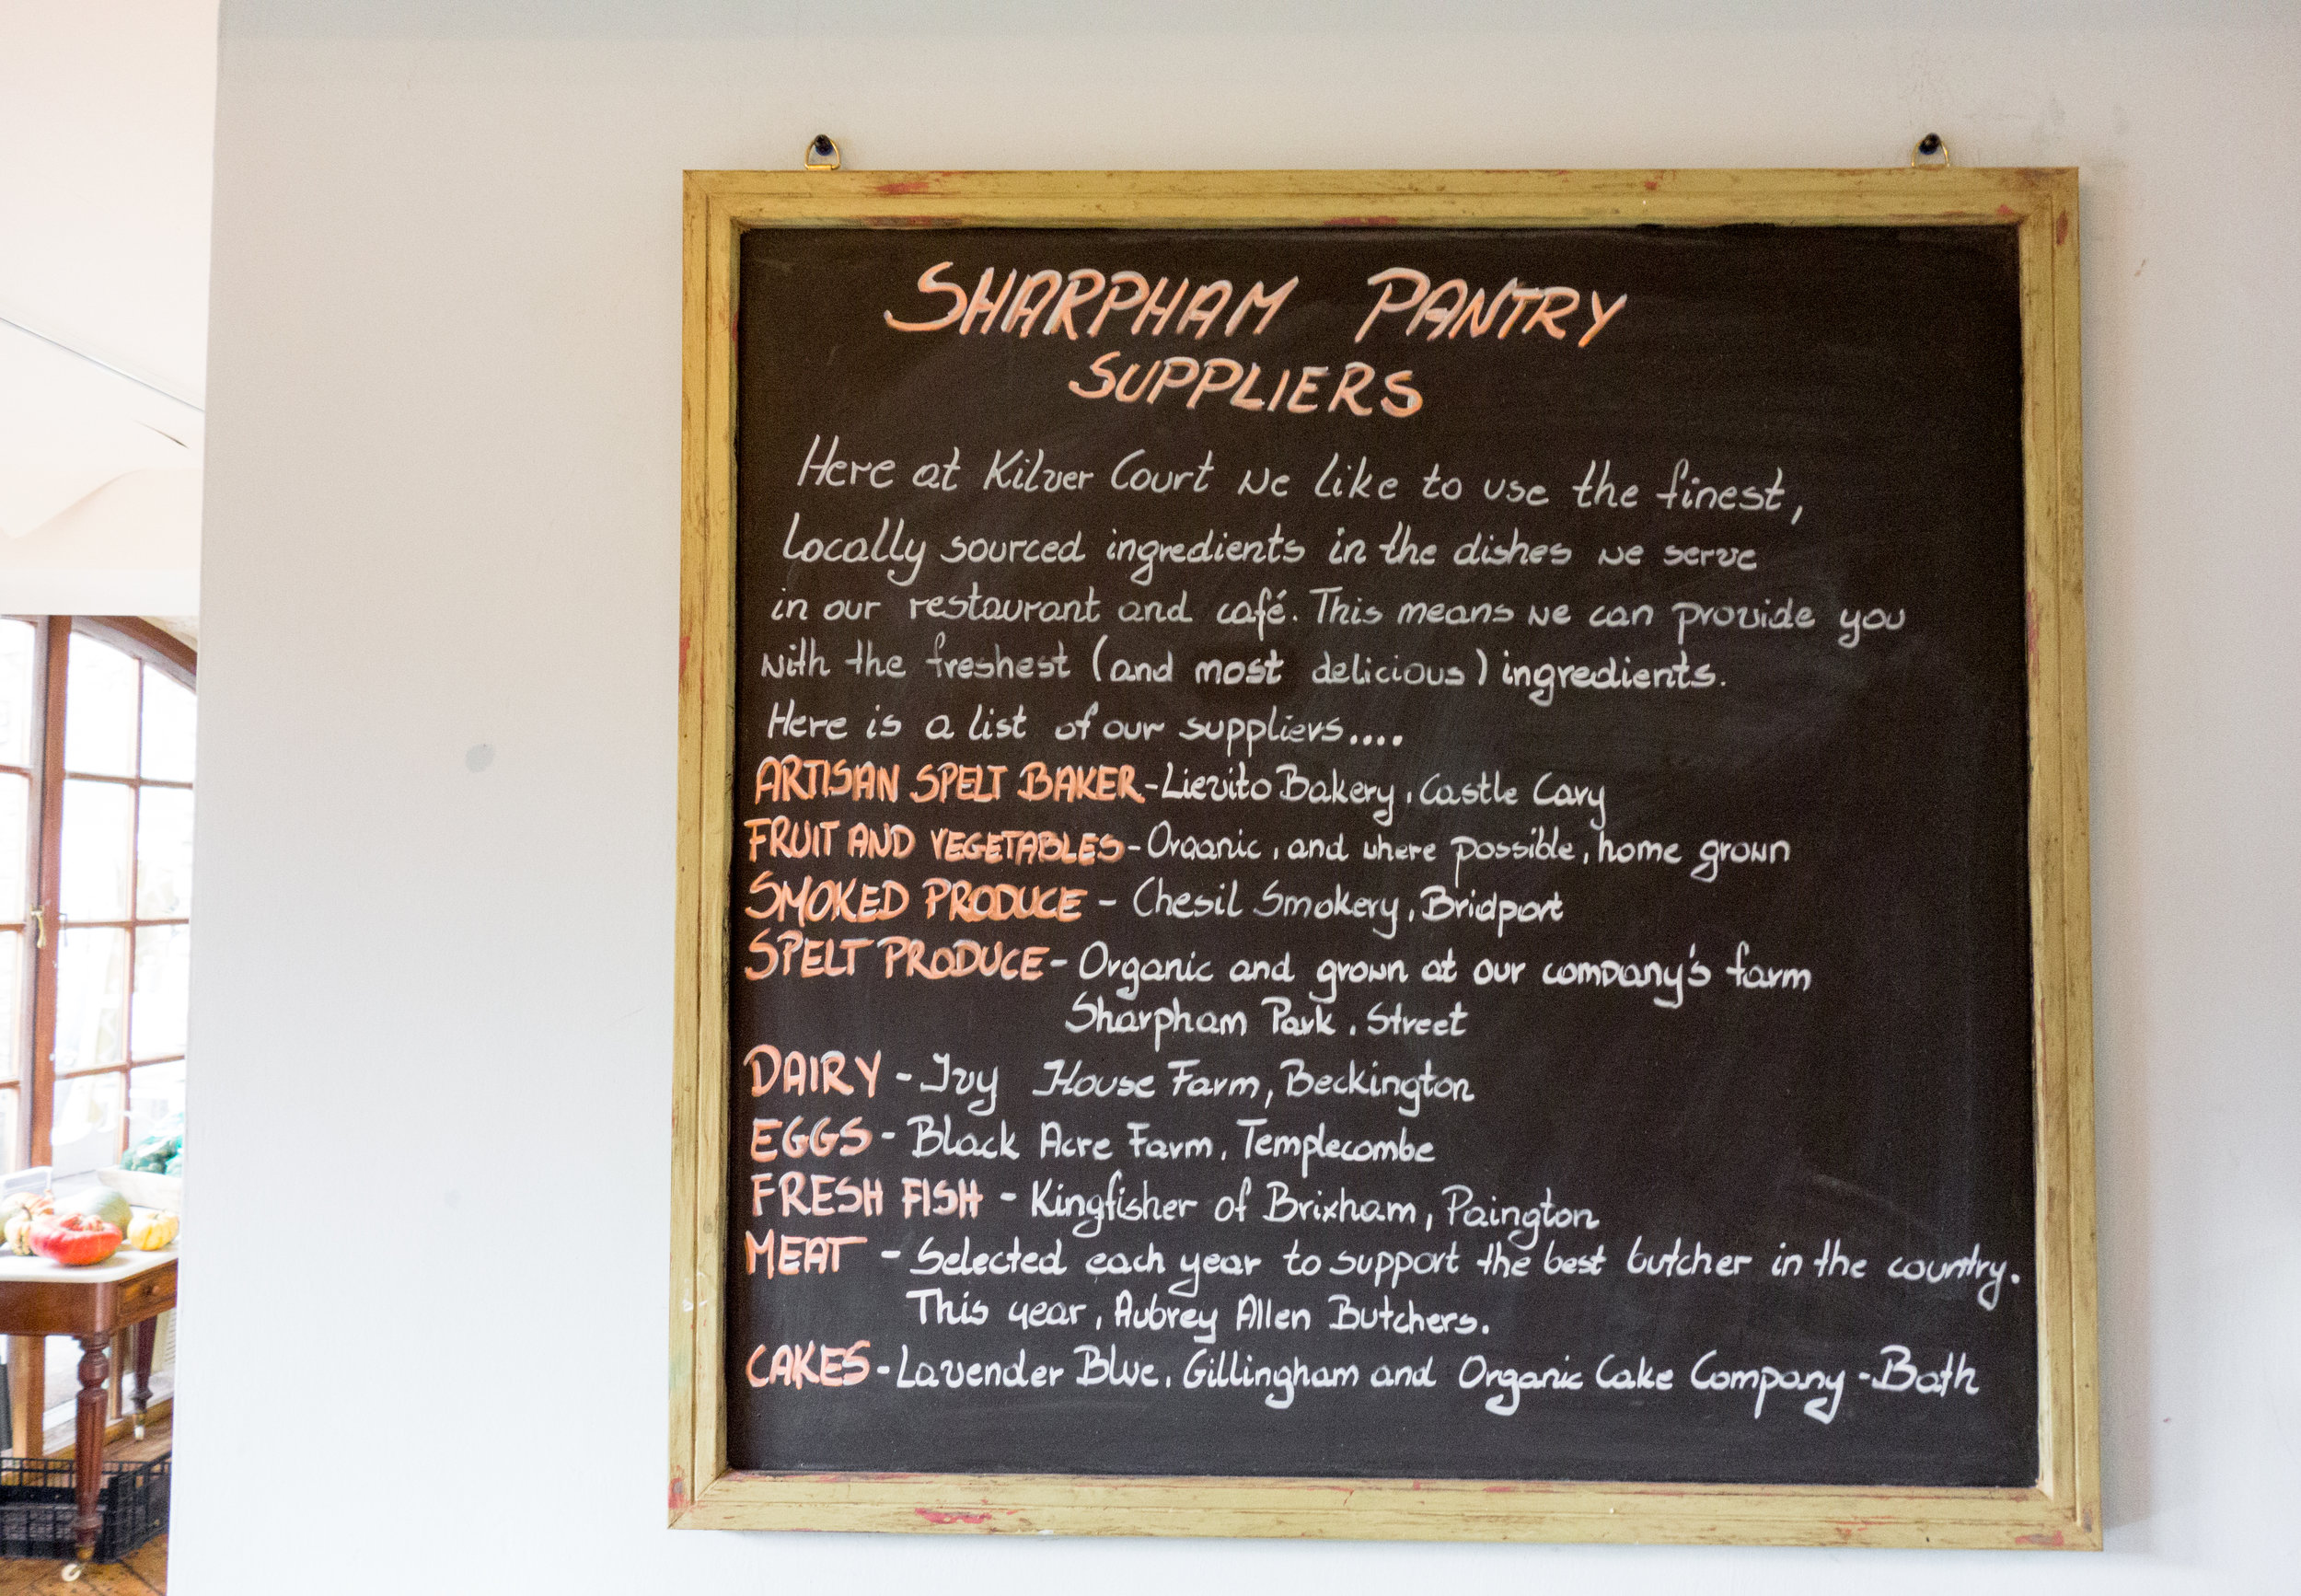 SHARPHAM PANTRY
SUPPLIERS
Here at Kilver Court we like to use the finest,
locally sourced ingredients in the dishes we serve
in our restaurant and café. This means we can provide you
with the freshest (and most delicious) ingredients.
Here is a list of our suppliers....
ARTISAN SPELT BAKER - Lievito Bakery, Castle Cary
FRUIT AND VEGETABLES - Organic, and where possible, home grown
SMOKED PRODUCE - Chesil Smokery, Bridport
SPELT PRODUCE - Organic and grown at our company's farm
Sharpham Park, Street
DAIRY - Ivy House Farm, Beckington
EGGS - Black Acre Farm, Templecombe
FRESH FISH - Kingfisher of Brixham, Paington
MEAT - Selected each year to support the best butcher in the country.
This year, Aubrey Allen Butchers.
CAKES - Lavender Blue, Gillingham and Organic Cake Company - Bath